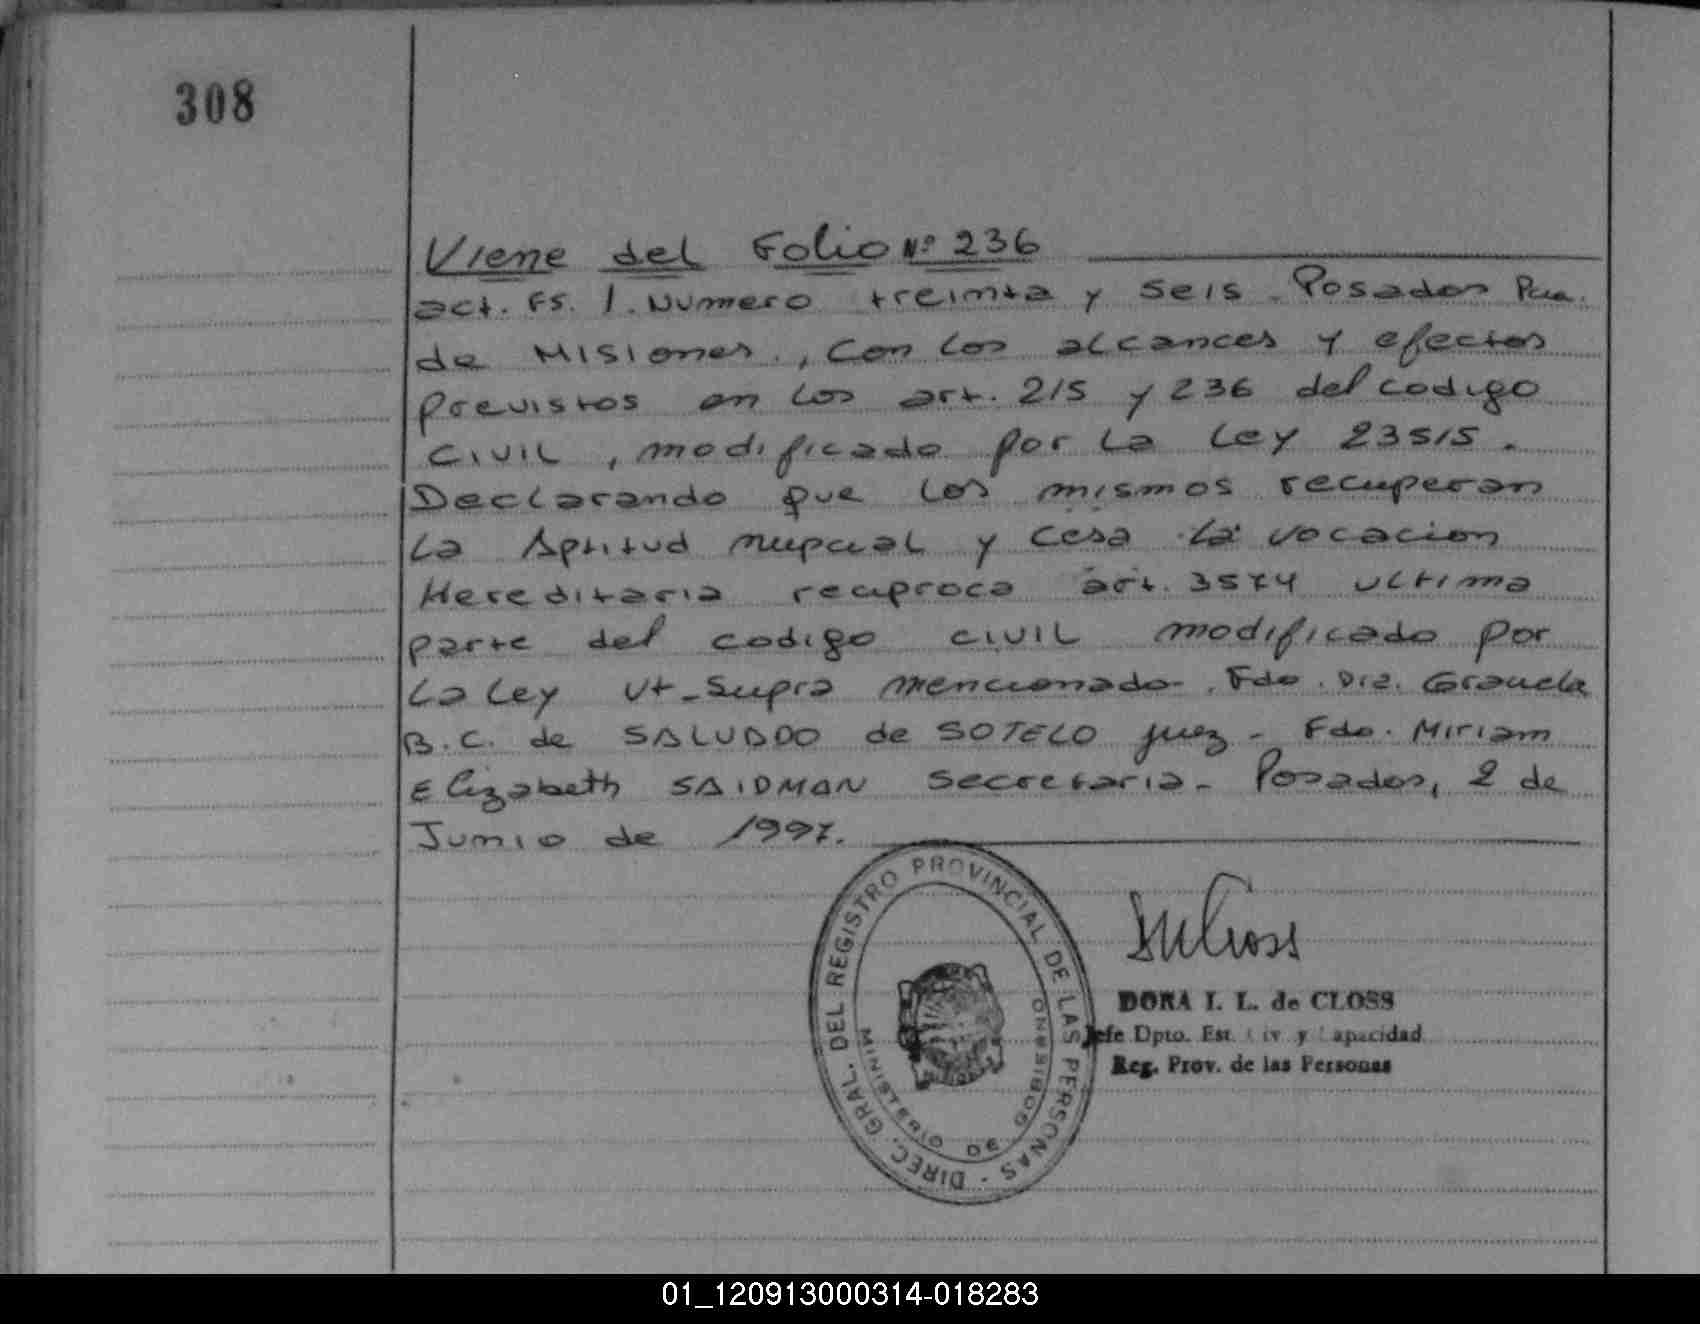 308
Viene del Folio Nº 236
act. Fs. 1. Numero treinta y seis. Posadas Pcia.
de Misiones., Con los alcances y efectos
previstos en los art. 215 y 236 del codigo
CIVIL, modificado por la Ley 23515.
Declarando que los mismos recuperan
la Aptitud nupcial y cesa la vocacion
Hereditaria reciproca art. 3574 ultima
parte del codigo CIVIL modificado por
la Ley Ut-Supra mencionado-. Fdo. Dra. Graciela
B.C. de SALUDDO de SOTELO juez - Fdo. Miriam
Elizabeth SAIDMAN Secretaria - Posadas, 2 de
Junio de 1997.
DIREC. GRAL. DEL REGISTRO PROVINCIAL DE LAS PERSONAS -
MINISTERIO DE GOBIERNO
DORA I. L. de CLOSS
Jefe Dpto. Est. Civ. y Capacidad
Reg. Prov. de las Personas
01_120913000314-018283